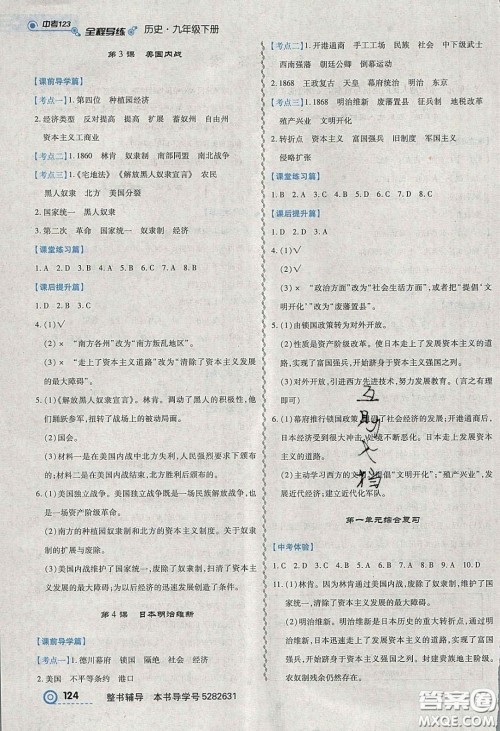 中考123 全程导练 历史·九年级下册
第3课 美国内战
【课前导学篇】
【考点一】1.第四位 种植园经济
2.经济类型 反对提高 提高 扩展 蓄奴州 自由州
资本主义工商业
【考点二】1.1860 林肯 奴隶制 南部同盟 南北战争
【考点三】1.《宅地法》《解放黑人奴隶宣言》 农民
黑人奴隶 北方 美国分裂
2.国家统一 黑人奴隶
3.第二次 革命 国家统一 奴隶制 经济
【课堂练习篇】
1.A 2.D 3.B 4.B 5.D 6.C 7.A
【课后提升篇】
1.D 2.D 3.A
4.(1)√
(2)× “南方各州”改为“南方叛乱地区”。
(3)× “走上了资本主义道路”改为“清除了资本主义发展
的最大障碍”。
5.(1)《解放黑人奴隶宣言》。林肯。调动了黑人的积极性,他
们踊跃参军,扭转了战场上的被动局面。
(2)国会。
(3)材料一是在美国内战中,北方失利,人民强烈要求废除
奴隶制;材料二是在北方打败南方,美国内战结束的背景
下发布的。
6.(1)美国独立战争。美国独立战争既是一场民族解放战争,
也是一场资产阶级革命。
(2)南方的种植园奴隶制和北方的资本主义发展;奴隶制
的扩展与废除。
(3)美国内战维护了国家统一,废除了奴隶制,清除了资本
主义发展的最大障碍,为经济的迅速发展创造了条件。
第4课 日本明治维新
【课前导学篇】
【考点一】1.德川幕府 锁国 隔绝 社会 经济
2.美国 不平等条约 港口
124 整书辅导 本书导学号5282631
【考点二】1.开港通商 手工工场 民族 社会 中下级武士
西南 天皇
2.1868 王政复古 天皇 幕府 明治 东京
【考点三】1.1868 明治维新 废藩置县 征兵制 地税改革
殖产兴业 文明开化
2.转折点 资本主义 富国强兵 旧制度 军国主义
侵略扩张
【课堂练习篇】
1.B 2.A 3.C 4.B 5.C 6.C 7.A 8.D
【课后提升篇】
1.D 2.D 3.B
4.(1)√
(2)√
(3)× “政治方面”改为“社会生活方面”,或者把“提倡‘文
明开化’”改为“废藩置县”。
5.(1)由锁国政策转为对外开放。
(2)性质是资产阶级改革。使日本走上了发展资本主义的
道路,实现了富国强兵,并开始跻身资本主义强国之列。
(3)对外开放,引进西方先进技术,努力发展教育。(言之有
理即可)
6.(1)幕府推行锁国政策,阻碍了社会经济的发展;开港通商后,
日本经济受到很大冲击,社会状况不断恶化。日本走上了发展
资本主义的道路。
(2)主动学习西方的文化,提倡“文明开化”;“殖产兴业”,发
展近代经济;建立近代化军队。
互助文档
第一单元综合复习
【中考体验】
1.C 2.B 3.D 4.C 5.C 6.D 7.A 8.B 9.A 10.B
11.(1)林肯。因为林肯通过美国内战维护了国家统一,废除
了奴隶制,清除了资本主义发展的最大障碍。
(2)明治维新。明治维新是日本历史的重大转折点,日本
由此走上了发展资本主义的道路,实现了富国强兵,开始
答案圈
MXQE.COM